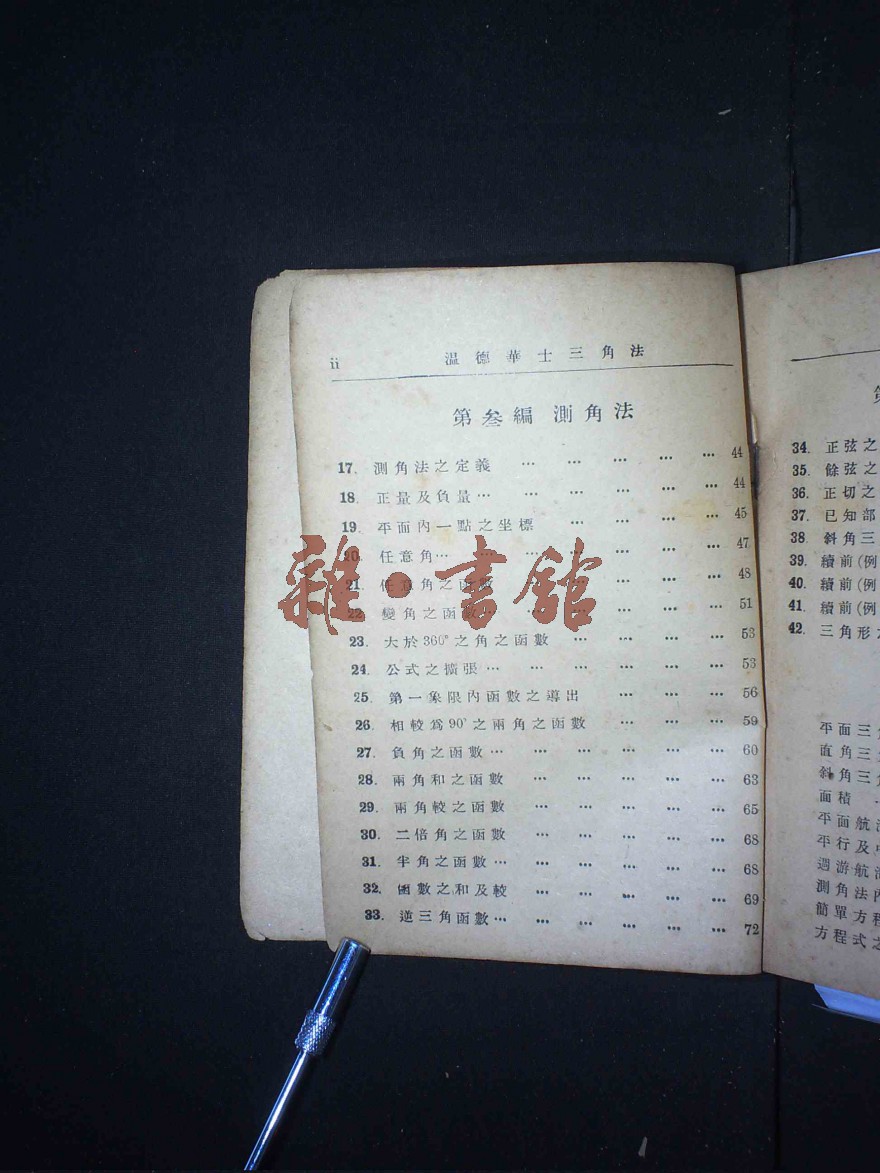 ii 温德華士三角法
第叁編 測角法
17. 測角法之定義 … … … … … 44
18. 正量及負量 … … … … … … 44
19. 平面內一點之坐標 … … … … 45
20. 任意角 … … … … … … 47
21. 任意角之函數 … … … … 48
22. 變角之函數 … … … … … 51
23. 大於360°之角之函數 … … … … 53
24. 公式之擴張 … … … … … … 53
25. 第一象限內函數之導出 … … … 56
26. 相較爲90°之兩角之函數 … … … 59
27. 負角之函數 … … … … … … 60
28. 兩角和之函數 … … … … … 63
29. 兩角較之函數 … … … … … 65
30. 二倍角之函數 … … … … … 68
31. 半角之函數 … … … … … … 68
32. 函數之和及較 … … … … … 69
33. 逆三角函數 … … … … … … 72
雜·書館
34. 正弦之
35. 餘弦之
36. 正切之
37. 已知部
38. 斜角三
39. 續前(例
40. 續前(例
41. 續前(例
42. 三角形
平面三角
直角三
斜角三
面積
平面航
平行及中
週游航
測角法內
簡單方程
方程式之